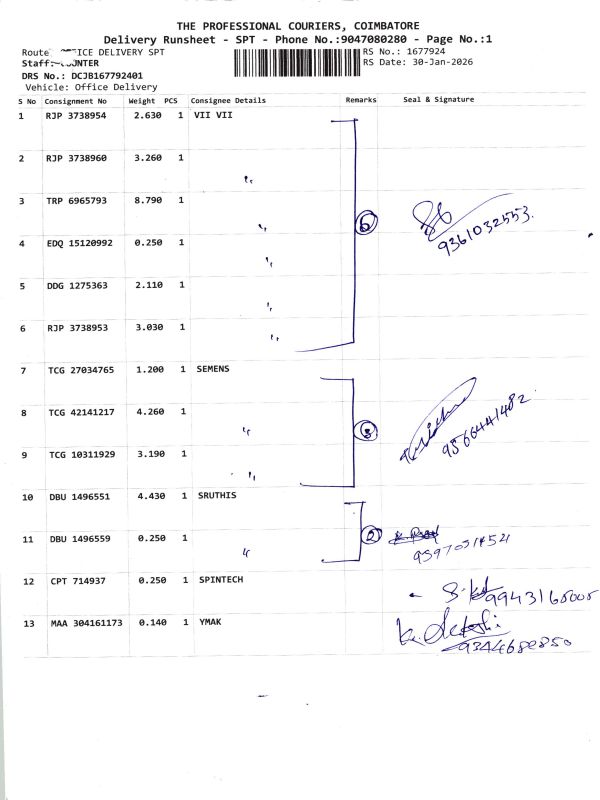 THE PROFESSIONAL COURIERS, COIMBATORE
Delivery Runsheet - SPT - Phone No.:9047080280 - Page No.:1
Route: OFFICE DELIVERY SPT RS No.: 1677924
Staff: COUNTER RS Date: 30-Jan-2026
DRS No.: DCJB167792401
Vehicle: Office Delivery
S No Consignment No Weight PCS Consignee Details Remarks Seal & Signature
1 RJP 3738954 2.630 1 VII VII
2 RJP 3738960 3.260 1 "
3 TRP 6965793 8.790 1 " 6 9361032553.
4 EDQ 15120992 0.250 1 "
5 DDG 1275363 2.110 1 "
6 RJP 3738953 3.030 1 "
7 TCG 27034765 1.200 1 SEMENS
8 TCG 42141217 4.260 1 " 3 9566441482
9 TCG 10311929 3.190 1 "
10 DBU 1496551 4.430 1 SRUTHIS
11 DBU 1496559 0.250 1 " 2
12 CPT 714937 0.250 1 SPINTECH
13 MAA 304161173 0.140 1 YMAK